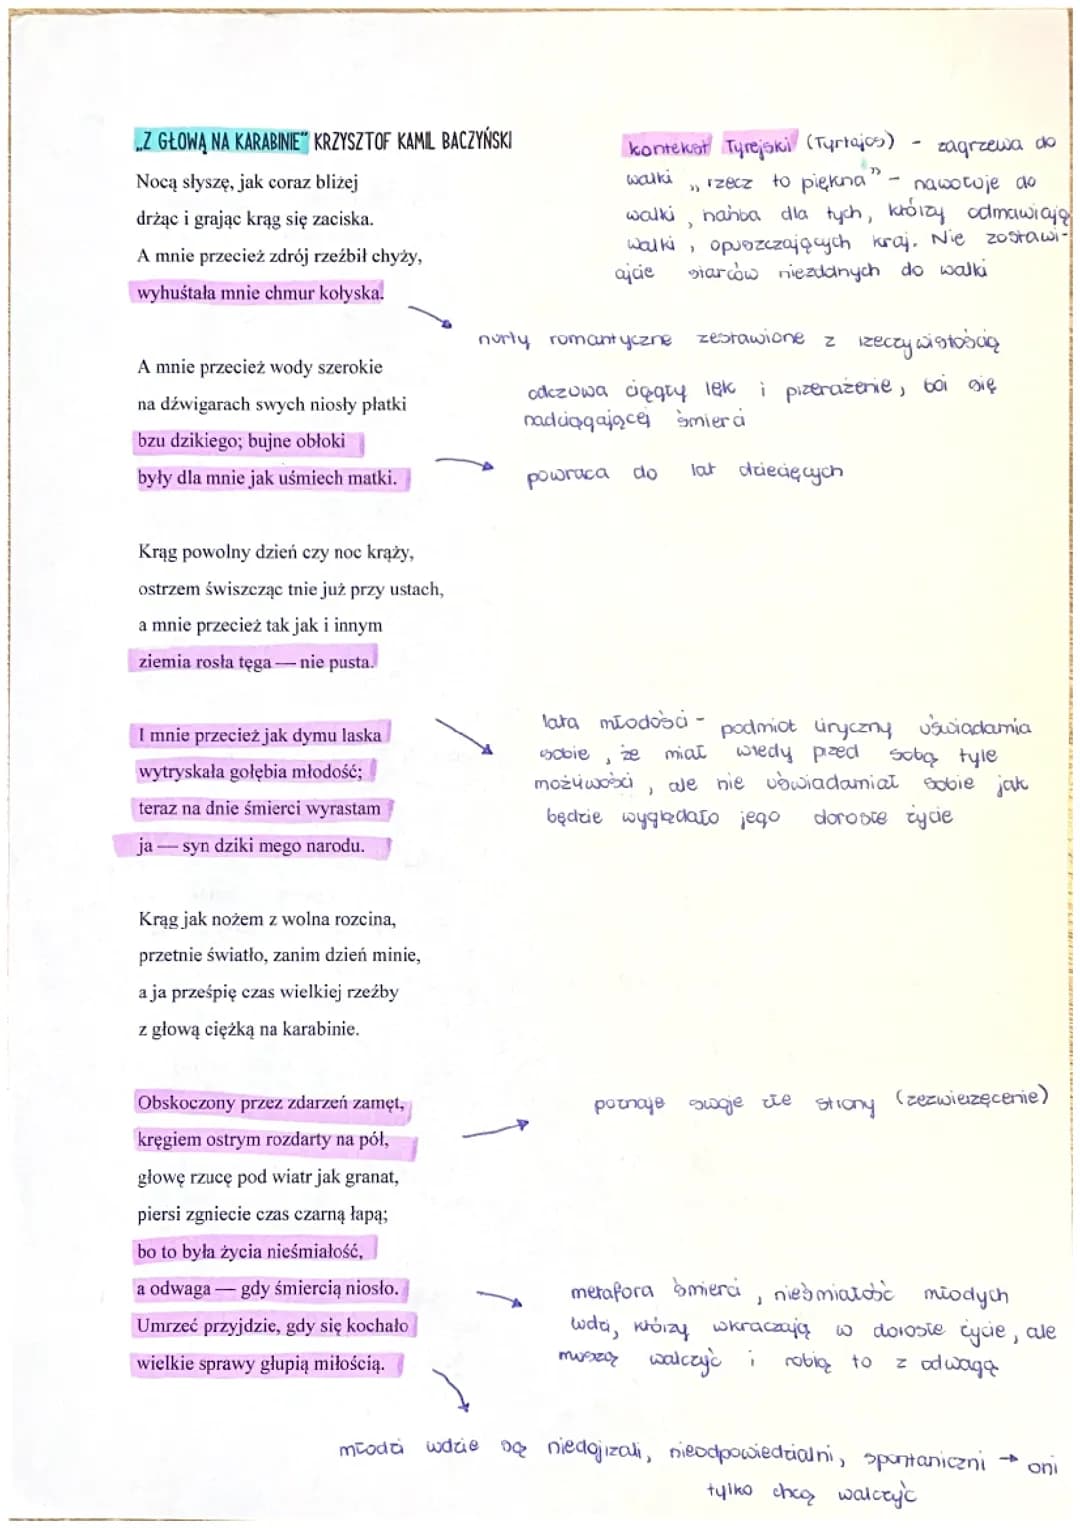 „Z GŁOWĄ NA KARABINIE” KRZYSZTOF KAMIL BACZYŃSKI
Nocą słyszę, jak coraz bliżej
drżąc i grając krąg się zaciska.
A mnie przecież zdrój rzeźbił chyży,
wyhuśtała mnie chmur kołyska.
kontekst Tyrejski (Tyrtajos) - zagrzewa do
walki „rzecz to piękna” - nawołuje do
walki, hańba dla tych, którzy odmawiają
walki, opuszczających kraj. Nie zostawi-
ajcie starców niezdolnych do walki
nurty romantyczne zestawione z rzeczywistością
A mnie przecież wody szerokie
na dźwigarach swych niosły płatki
bzu dzikiego; bujne obłoki
były dla mnie jak uśmiech matki.
odczuwa ciągły lęk i przerażenie, boi się
nadciągającej śmierci
powraca do lat dziecięcych
Krąg powolny dzień czy noc krąży,
ostrzem świszcząc tnie już przy ustach,
a mnie przecież tak jak i innym
ziemia rosła tęga — nie pusta.
I mnie przecież jak dymu laska
wytryskała gołębia młodość;
teraz na dnie śmierci wyrastam
ja — syn dziki mego narodu.
lata młodości - podmiot liryczny uświadamia
sobie, że miał wtedy przed sobą tyle
możliwości, ale nie uświadamiał sobie jak
będzie wyglądało jego dorosłe życie
Krąg jak nożem z wolna rozcina,
przetnie światło, zanim dzień minie,
a ja prześpię czas wielkiej rzeźby
z głową ciężką na karabinie.
Obskoczony przez zdarzeń zamęt,
kręgiem ostrym rozdarty na pół,
głowę rzucę pod wiatr jak granat,
piersi zgniecie czas czarną łapą;
bo to była życia nieśmiałość,
a odwaga — gdy śmiercią niosło.
Umrzeć przyjdzie, gdy się kochało
wielkie sprawy głupią miłością.
poznaje swoje złe strony (zezwierzęcenie)
metafora śmierci, nieśmiałość młodych
ludzi, którzy wkraczają w dorosłe życie, ale
muszą walczyć i robią to z odwagą
młodzi ludzie są niedojrzali, nieodpowiedzialni, spontaniczni → oni
tylko chcą walczyć